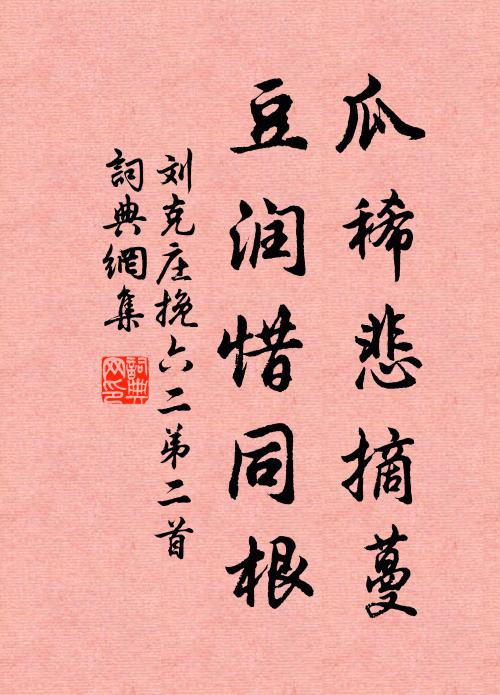 瓜稀悲摘蔓
豆润惜同根
刘克庄挽六二弟二首
詞典網集
詞典网印